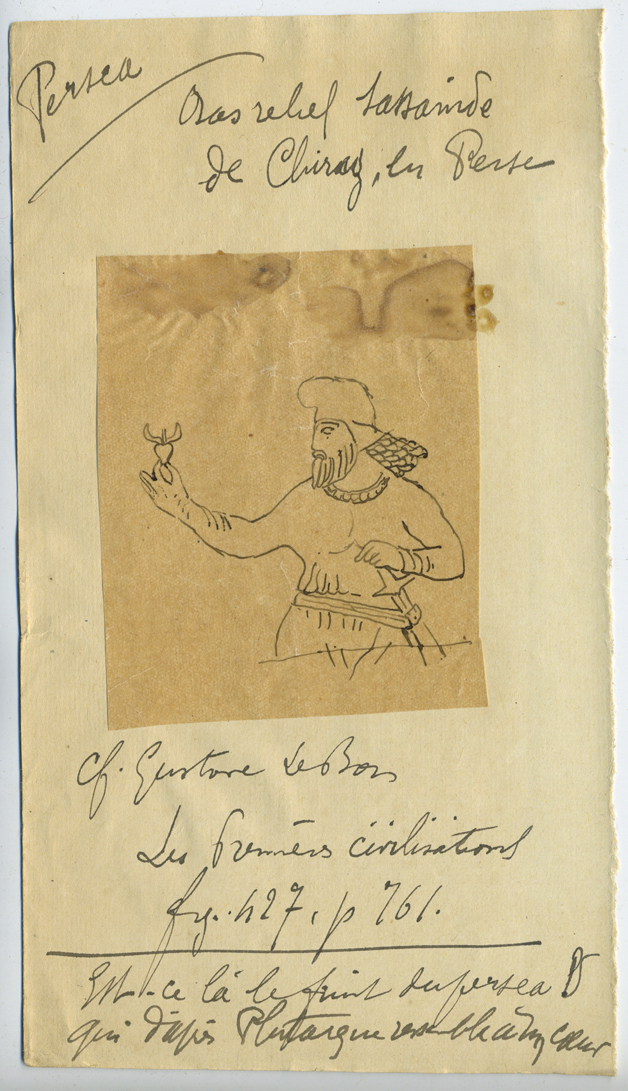 Persea
Bas relief Sassanide
de Chiraz, en Perse
cf. Gustave Le Bon
Les Premières civilisations
fig. 427, p 761.
Est-ce là le fruit du persea
qui d'après Plutarque ressemble à un cœur